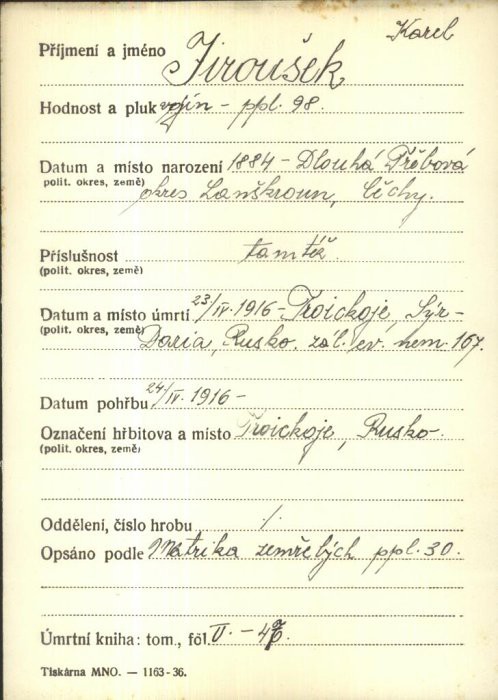 Karel
Příjmení a jméno Jiroušek
Hodnost a pluk - ppl. 98.
Datum a místo narození 1884 - Dlouhá Třěbová
polit. okres, země) okres Lanškroun, Čěchy.
Příslušnost tamtéž.
(polit. okres, země)
Datum a místo úmrtí 23/IV. 1916 - Troickoje, Syr-
(polit. okres, země) Daria, Rusko. zál. ev. nem. 167.
Datum pohřbu 24/IV. 1916 -
Označení hřbitova a místo Troickoje, Rusko.
(polit. okres, země)
Oddělení, číslo hrobu /.
Opsáno podle Matrika zemřelých ppl. 30.
Úmrtní kniha: tom., fol. II. -
Tiskárna MNO. — 1163-36.